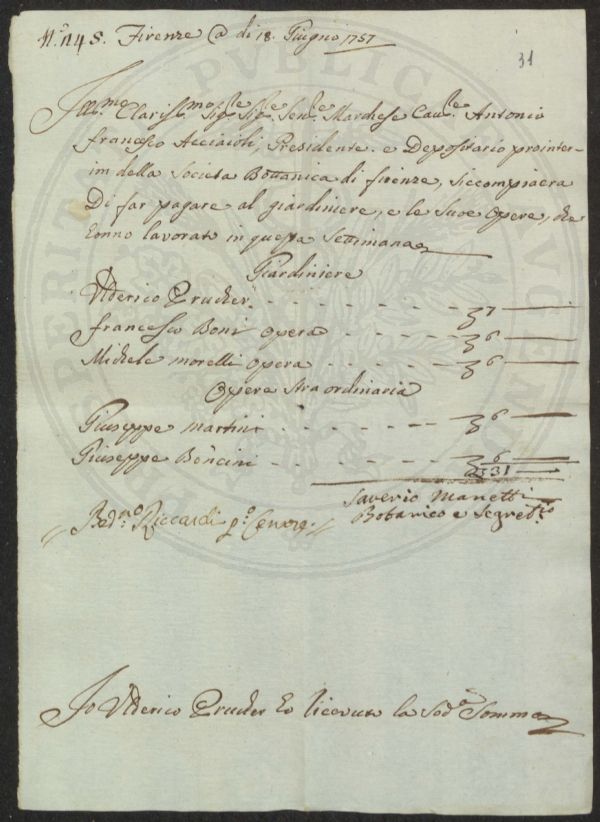 N.° 145. Firenze @ di 18. Giugno 1757
31
Ill.mo Clariss.mo Sig.re Sig.re Sen.re Marchese Cav.re Antonio
Francesco Acciaioli, Presidente. e Depositario prointer-
im della Societa Bottanica di firenze, siccompiacera
Di far pagare al giardiniere, e le Suoe opere, che
Eonno lavorato in questa Settimana
Giardiniere
Ulderico Prucher. - - - - - - 7
Francesco Boni opera - - - - - 6
Michele morelli opera - - - - - 6
Opere straordinaria
Giuseppe martini - - - - - - 6
Giuseppe Boncini - - - - - 6
31
Saverio Manetti
Botanico e Segret.rio
Bed.no Riccardi
Io Ulderico Prucher Eo riceuuto la Sod.a Somma
PVBLICAE
PROSPERITATI